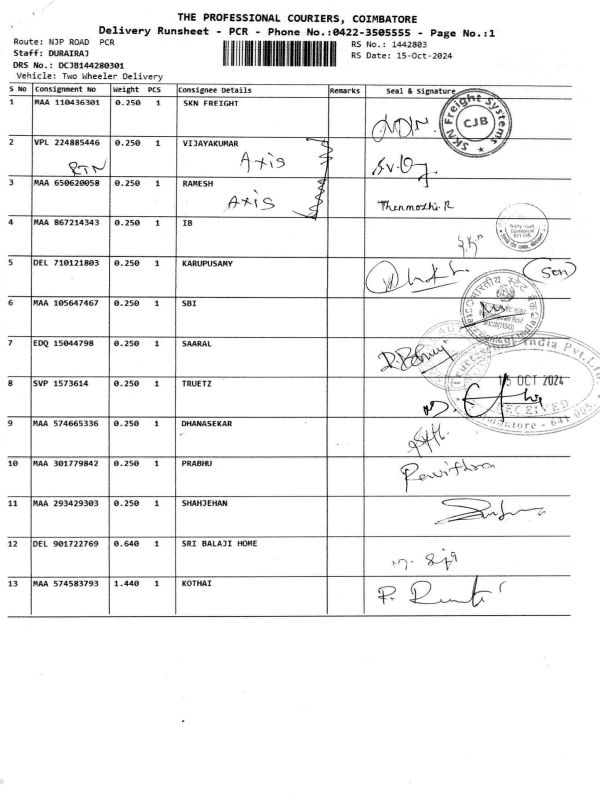 THE PROFESSIONAL COURIERS, COIMBATORE
Delivery Runsheet - PCR - Phone No.:0422-3505555 - Page No.:1
Route: NJP ROAD PCR
RS No.: 1442803
Staff: DURAIRAJ
RS Date: 15-Oct-2024
DRS No.: DCJB144280301
Vehicle: Two Wheeler Delivery
S No Consignment No Weight PCS Consignee Details Remarks Seal & Signature
1 MAA 110436301 0.250 1 SKN FREIGHT
SKN Freight Systems
CJB
2 VPL 224885446 0.250 1 VIJAYAKUMAR
RTN Axis
3 MAA 650620058 0.250 1 RAMESH
Axis Thenmozhi.R
4 MAA 867214343 0.250 1 IB
5 DEL 710121803 0.250 1 KARUPUSAMY
(Son)
6 MAA 105647467 0.250 1 SBI
भारतीय स्टेट
7 EDQ 15044798 0.250 1 SAARAL
India Pvt.Ltd.
8 SVP 1573614 0.250 1 TRUETZ
15 OCT 2024
RECEIVED
9 MAA 574665336 0.250 1 DHANASEKAR
10 MAA 301779842 0.250 1 PRABHU
Pavithra
11 MAA 293429303 0.250 1 SHAHJEHAN
12 DEL 901722769 0.640 1 SRI BALAJI HOME
13 MAA 574583793 1.440 1 KOTHAI